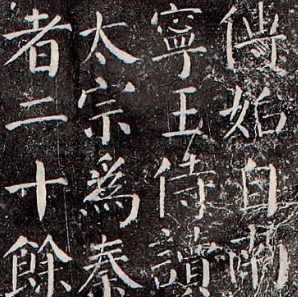 始自南
寧王侍讀
太宗爲秦
者二十餘